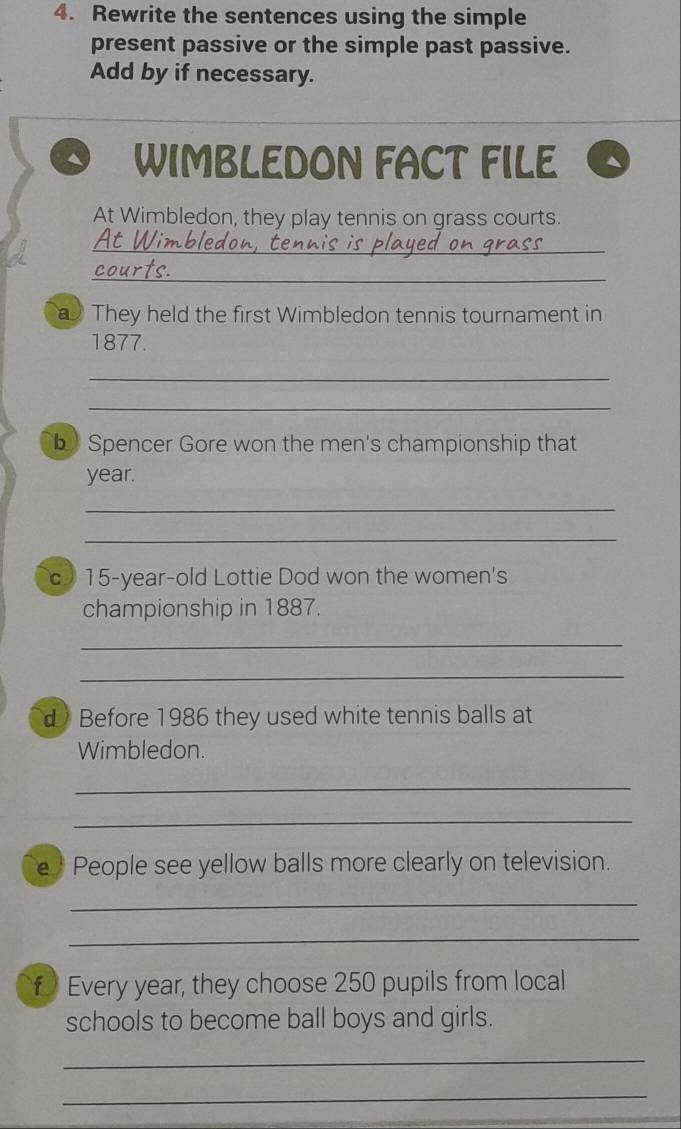 4. Rewrite the sentences using the simple
present passive or the simple past passive.
Add by if necessary.
WIMBLEDON FACT FILE
At Wimbledon, they play tennis on grass courts.
At Wimbledon, tennis is played on grass
courts.
a They held the first Wimbledon tennis tournament in
1877.
b Spencer Gore won the men's championship that
year.
c 15-year-old Lottie Dod won the women's
championship in 1887.
d Before 1986 they used white tennis balls at
Wimbledon.
e People see yellow balls more clearly on television.
f Every year, they choose 250 pupils from local
schools to become ball boys and girls.